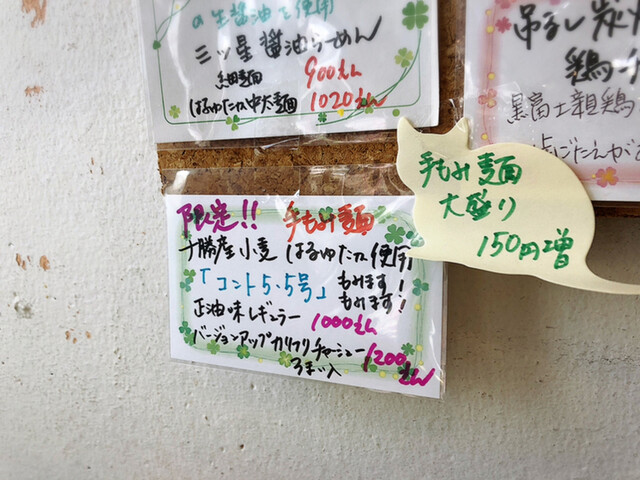 の生醤油を使用
三ツ星醤油らーめん
細麺 900えん
はるゆたか中太麺 1020えん
吊るし炭
鶏
黒富士親鶏
手もみ麺
大盛り
150円増
限定!! 手もみ麺
十勝産小麦 はるゆたか使用
「コント5.5号」 もみます!
もみます!
正油味レギュラー 1000えん
バージョンアップカリフリチャーシュー 1200えん
3まい入